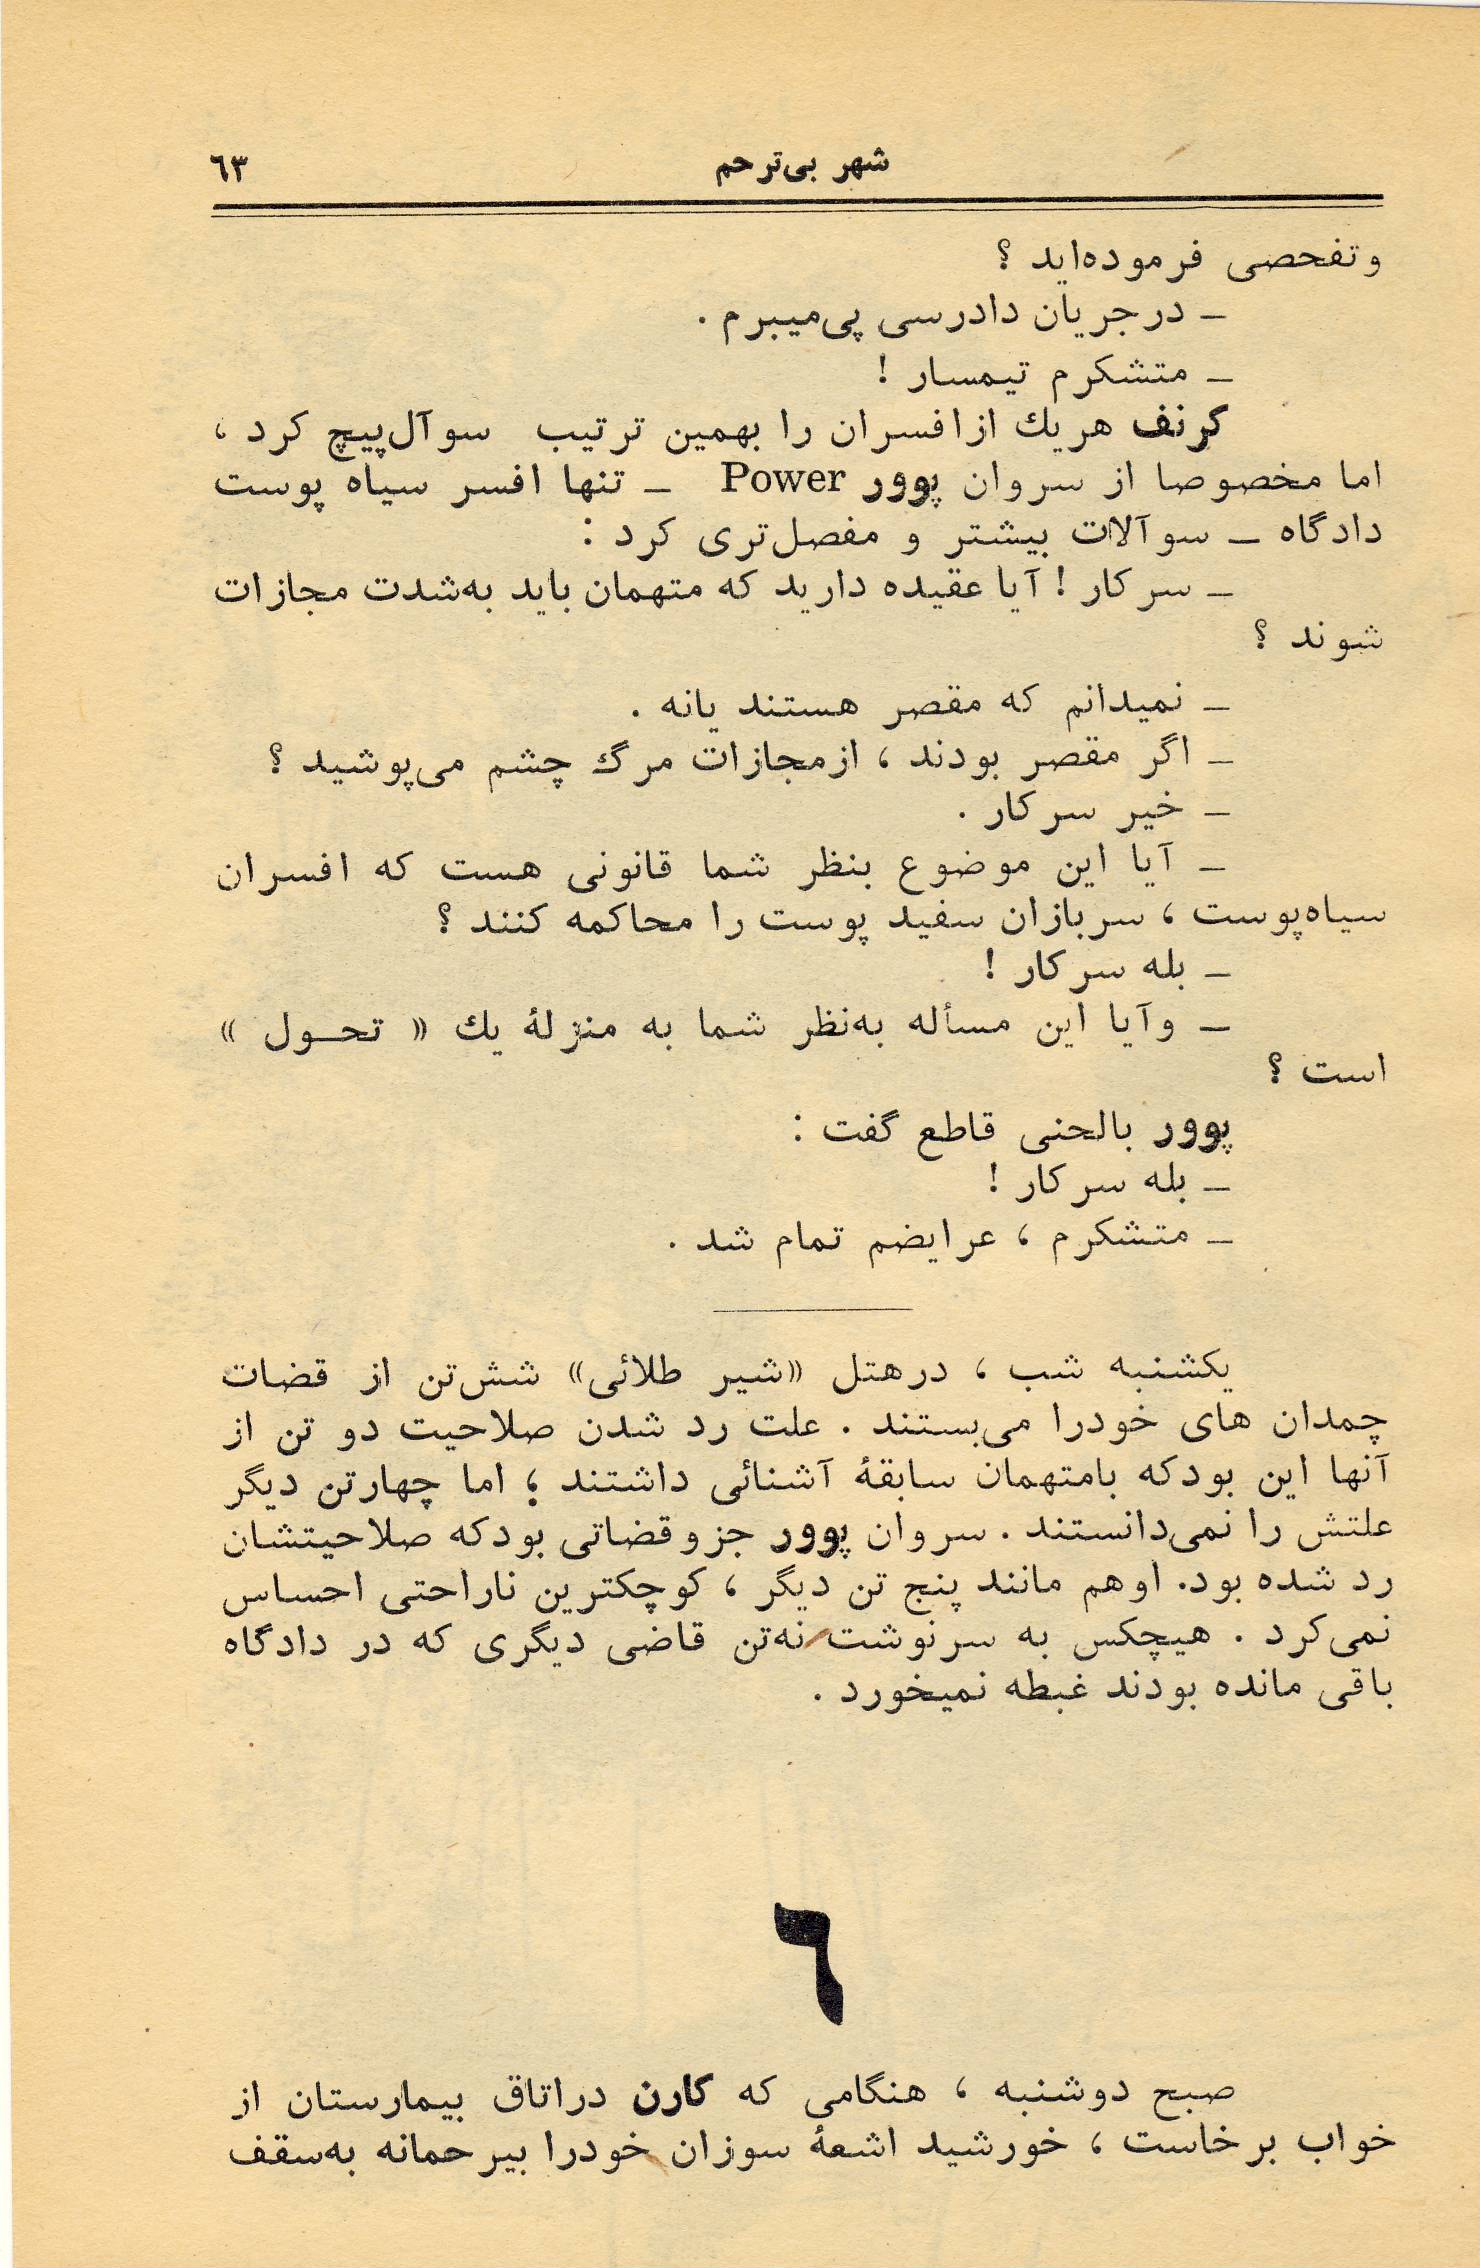 شهر بی‌ترحم ٦٣
وتفحصی فرموده‌اید ؟
ـ درجریان دادرسی پی‌میبرم .
ـ متشکرم تیمسار !
کرنف هریك ازافسران را بهمین ترتیب سوآل‌پیچ کرد ،
اما مخصوصا از سروان پوور Power ـ تنها افسر سیاه پوست
دادگاه ـ سوآلات بیشتر و مفصل‌تری کرد :
ـ سرکار ! آیا عقیده دارید که متهمان باید به‌شدت مجازات
شوند ؟
ـ نمیدانم که مقصر هستند یانه .
ـ اگر مقصر بودند ، ازمجازات مرگ چشم می‌پوشید ؟
ـ خیر سرکار .
ـ آیا این موضوع بنظر شما قانونی هست که افسران
سیاه‌پوست ، سربازان سفید پوست را محاکمه کنند ؟
ـ بله سرکار !
ـ وآیا این مسأله به‌نظر شما به منزلهٔ یك « تحـول »
است ؟
پوور بالحنی قاطع گفت :
ـ بله سرکار !
ـ متشکرم ، عرایضم تمام شد .
یکشنبه شب ، درهتل «شیر طلائی» شش‌تن از قضات
چمدان های خودرا می‌بستند . علت رد شدن صلاحیت دو تن از
آنها این بودکه بامتهمان سابقهٔ آشنائی داشتند ؛ اما چهارتن دیگر
علتش را نمی‌دانستند . سروان پوور جزوقضاتی بودکه صلاحیتشان
رد شده بود. اوهم مانند پنج تن دیگر ، کوچکترین ناراحتی احساس
نمی‌کرد . هیچکس به سرنوشت نه‌تن قاضی دیگری که در دادگاه
باقی مانده بودند غبطه نمیخورد .
٦
صبح دوشنبه ، هنگامی که کارن دراتاق بیمارستان از
خواب برخاست ، خورشید اشعهٔ سوزان خودرا بیرحمانه به‌سقف